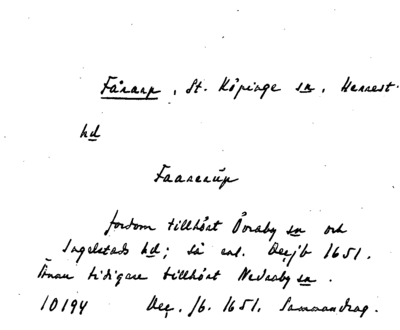 Fårarp, St. Köpinge sn, Herrest-
hd
Faarerüp
fordom tillhört Öraby sn och
Ingelstads hd; så enl. Decjb 1651.
Ännu tidigare tillhört Nedraby sn.
10194 Dec. jb. 1651. Sammandrag.